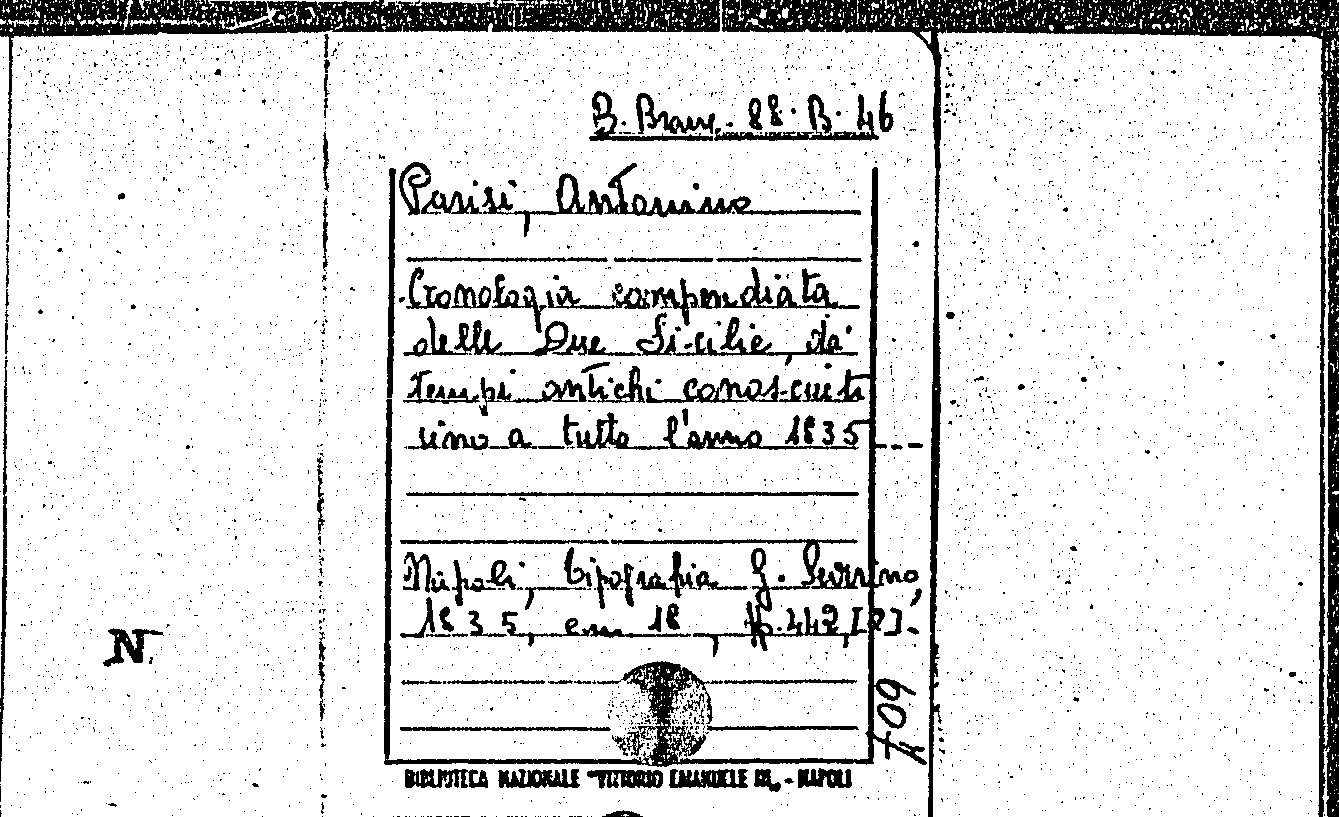 B. Branc. 88. B. 46
Parisi, Antonino
Cronologia compendiata
delle Due Sicilie, da'
tempi antichi conosciuti
sino a tutto l'anno 1835 ---
Napoli, tipografia G. Severino,
1835, cm 18, pp. 442, [2].
N
409
BIBLIOTECA NAZIONALE "VITTORIO EMANUELE III„ - NAPOLI